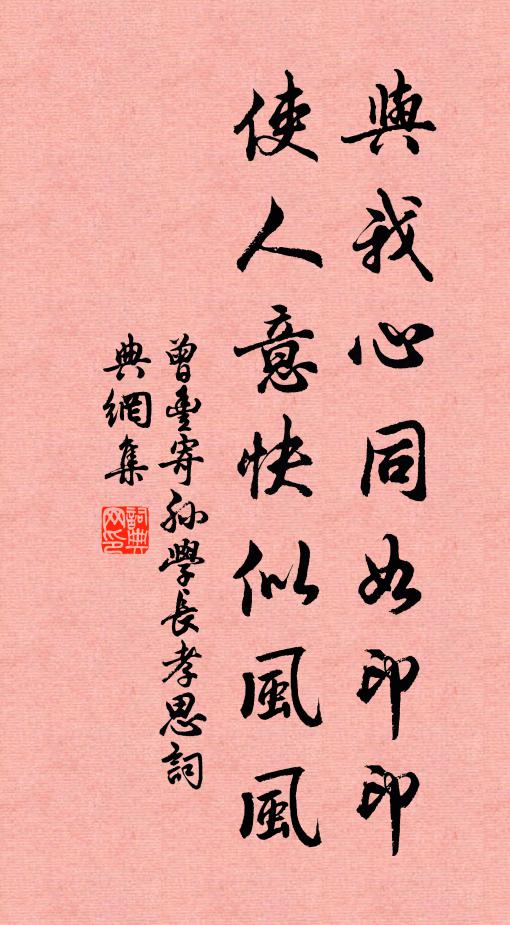 與我心同如印印
使人意快似風風
曾豐寄孫學長孝思詞
典網集
詞典网印